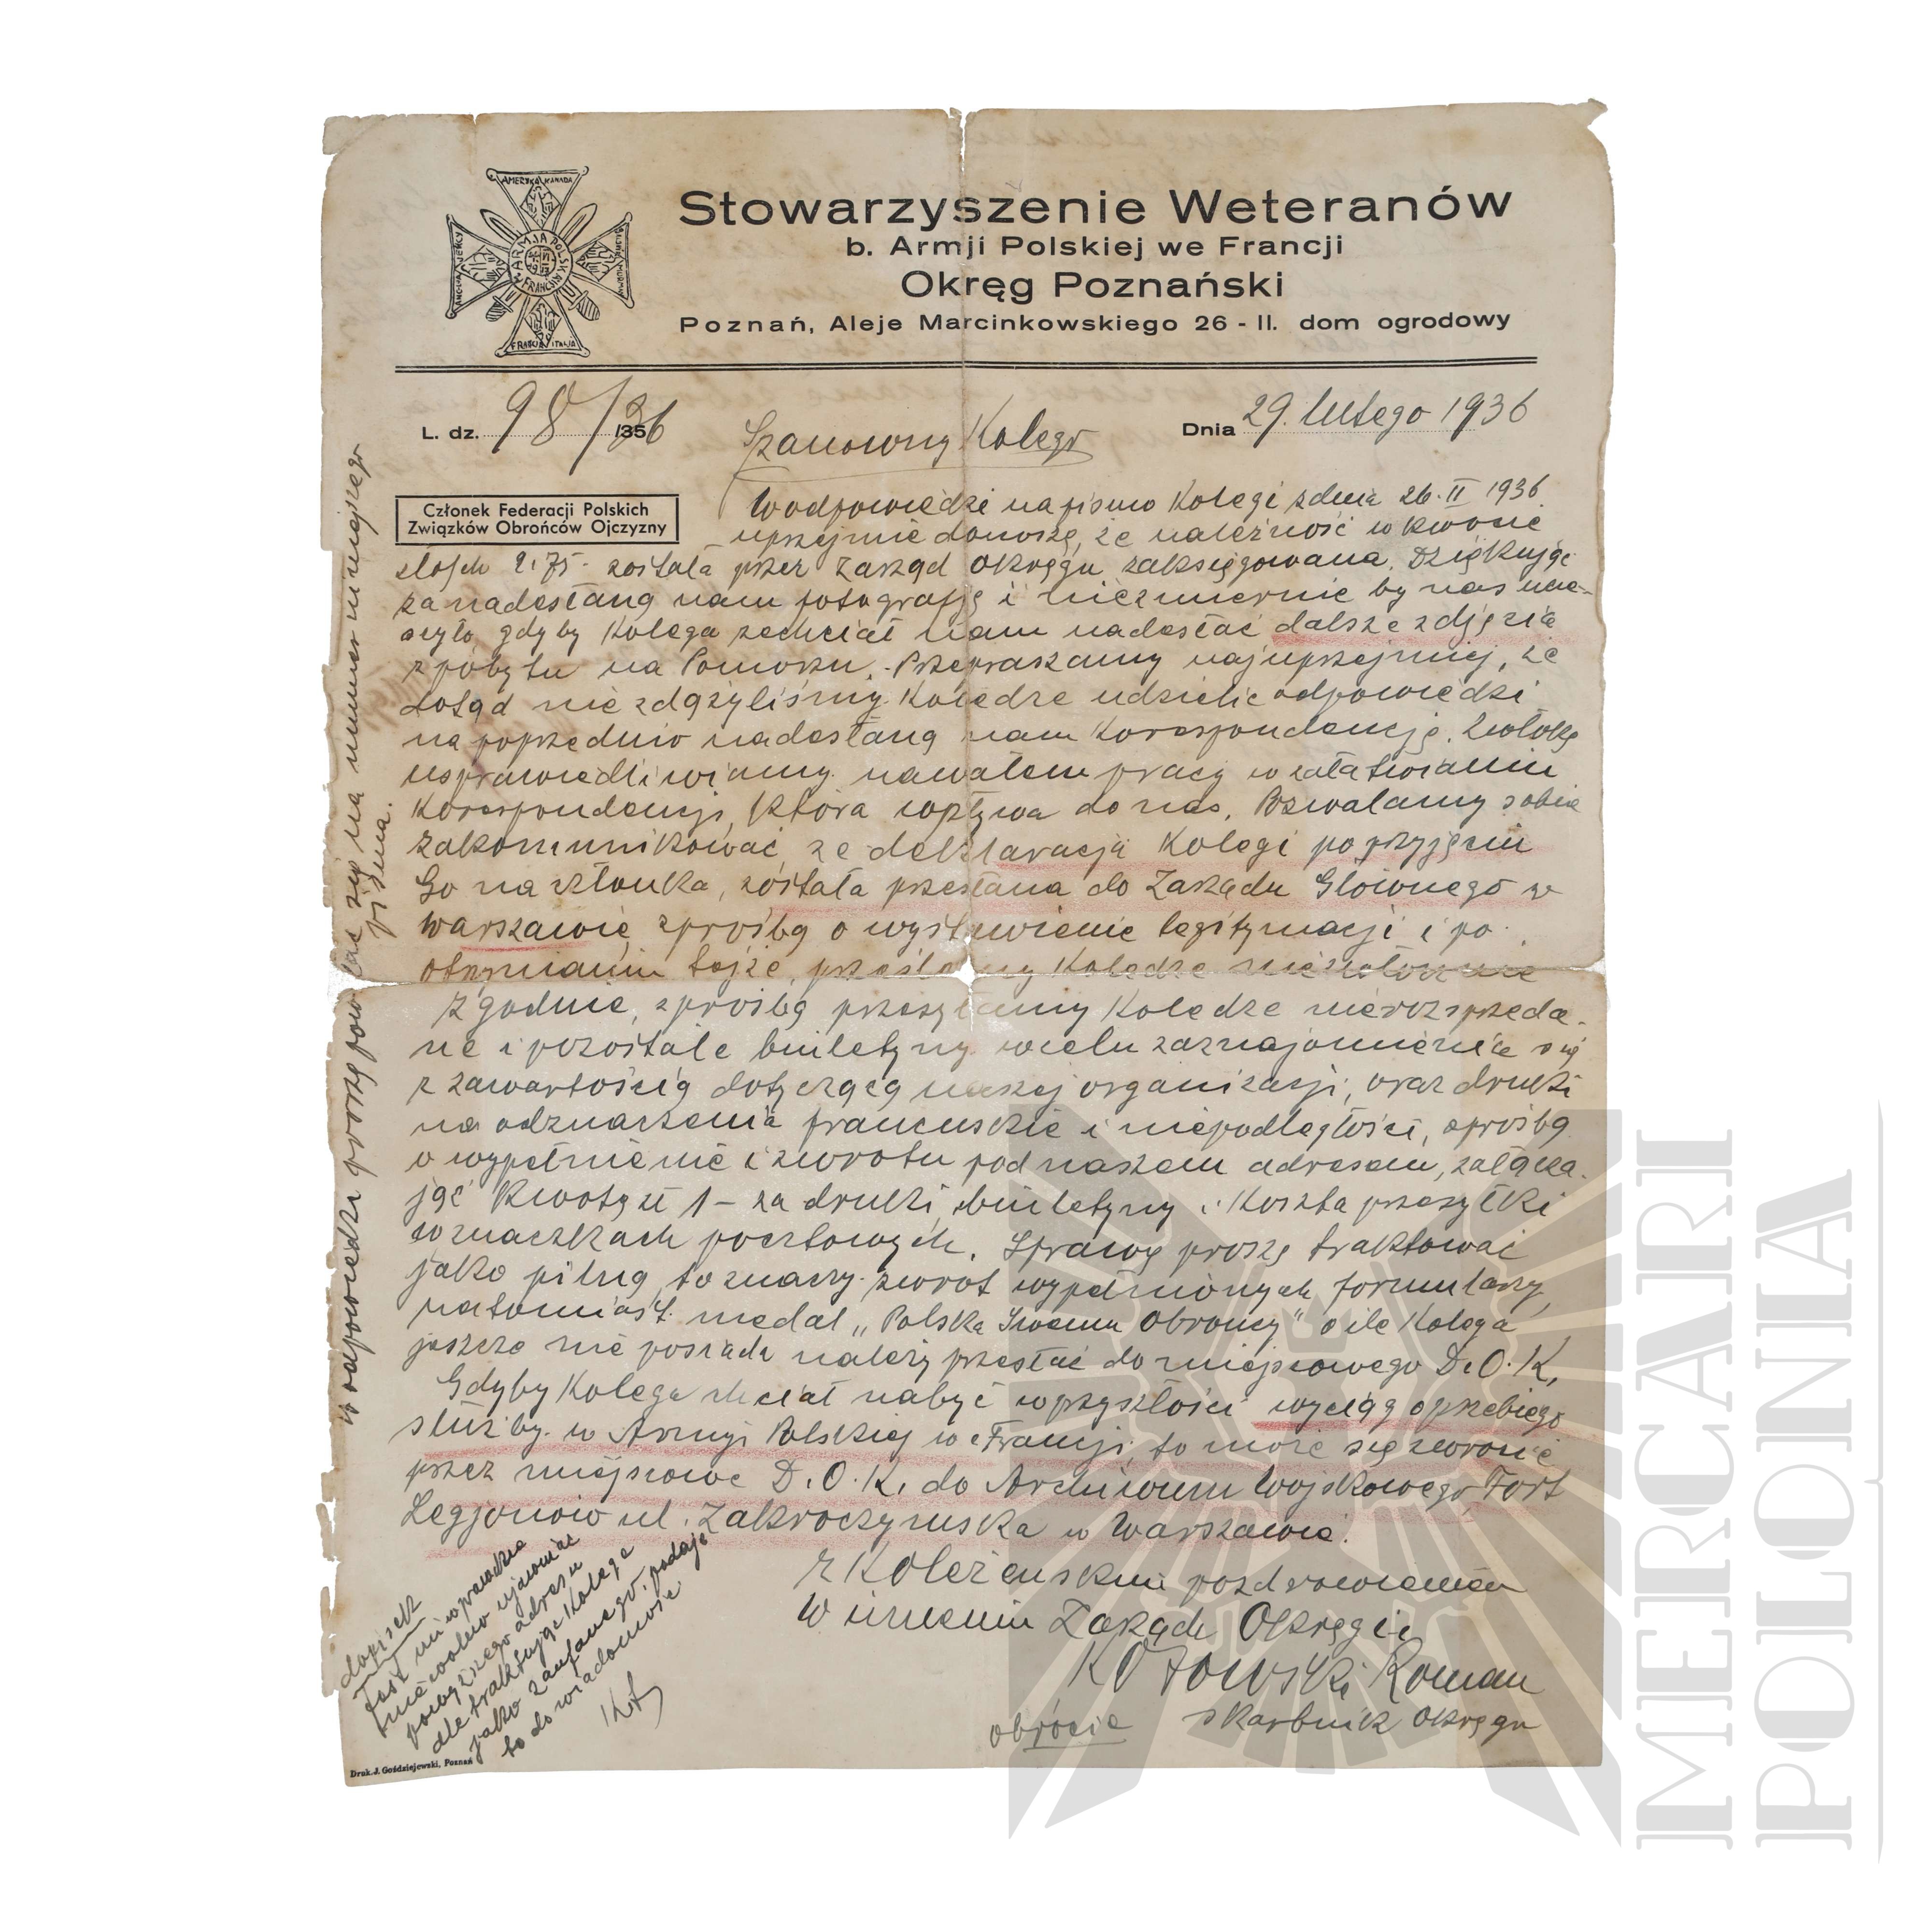 AMERYKA KANADA
ARMJA POLSKA WE FRANCJI
FRANCJA ITALJA
Stowarzyszenie Weteranów
b. Armji Polskiej we Francji
Okręg Poznański
Poznań, Aleje Marcinkowskiego 26 - II. dom ogrodowy
L. dz. 98/36 /35
Dnia 29. lutego 1936
Szanowny Kolego
Członek Federacji Polskich
Związków Obrońców Ojczyzny
W odpowiedzi na pismo Kolegi z dnia 26. II 1936
uprzejmie donoszę, że należność w kwocie
złotych 2.75 - została przez Zarząd Okręgu zaksięgowana. Dziękując
za nadesłaną nam fotografję i niezmiernie by nas ucie-
szyło, gdyby Kolega zechciał nam nadesłać dalsze zdjęcia
z pobytu na Pomorzu. - Przepraszamy najuprzejmiej, że
dotąd nie zdążyliśmy Koledze udzielić odpowiedzi
na poprzednio nadesłaną nam korespondencję. Zwłokę
usprawiedliwiamy nawałem pracy w załatwianiu
korespondencji, która wpływa do nas. Pozwalamy sobie
zakomunikować, że deklaracja Kolegi po przyjęciu
Go na członka, została przesłana do Zarządu Głównego w
Warszawie z prośbą o wystawienie legitymacji i po
otrzymaniu tejże, prześlemy Koledze niezwłocznie
Zgodnie, z prośbą przesyłamy Koledze nierozsprzeda-
ne i pozostałe biuletyny w celu zaznajomienia się
z zawartością dotyczącą naszej organizacji, oraz druki
na odznaczenia francuskie i niepodległości, z prośbą
o wypełnienie i zwrotu pod naszem adresem, załącza-
jąc kwotę zł 1 - za druki, biuletyny i koszta przesyłki
w znaczkach pocztowych. Sprawę proszę traktować
jako pilną, to znaczy zwrot wypełnionych formularzy,
natomiast medal „Polska Swemu Obrońcy" o ile Kolega
jeszcze nie posiada należy przesłać do miejscowego D.O.K.
Gdyby Kolega chciał nabyć w przyszłości wyciąg o przebiegu
służby w Armji Polskiej we Francji, to może się zwrócić
przez miejscowe D.O.K. do Archiwum Wojskowego, Fort
Legjonów ul. Zakroczymska w Warszawie.
Z Koleżeńskim pozdrowieniem
W imieniu Zarządu Okręgu
Kozłowski Roman
obrócić skarbnik Okręgu
dopisek
Jest mi wprawdzie
nie wolno ujawniać
powyższego adresu
ale traktując Kolegę
jako zaufanego, podaję
to do wiadomości
W odpowiedzi proszę powołać się na numer niniejszego
pisma.
Druk. J. Goździejewski, Poznań
IMERCARI
POLONIA